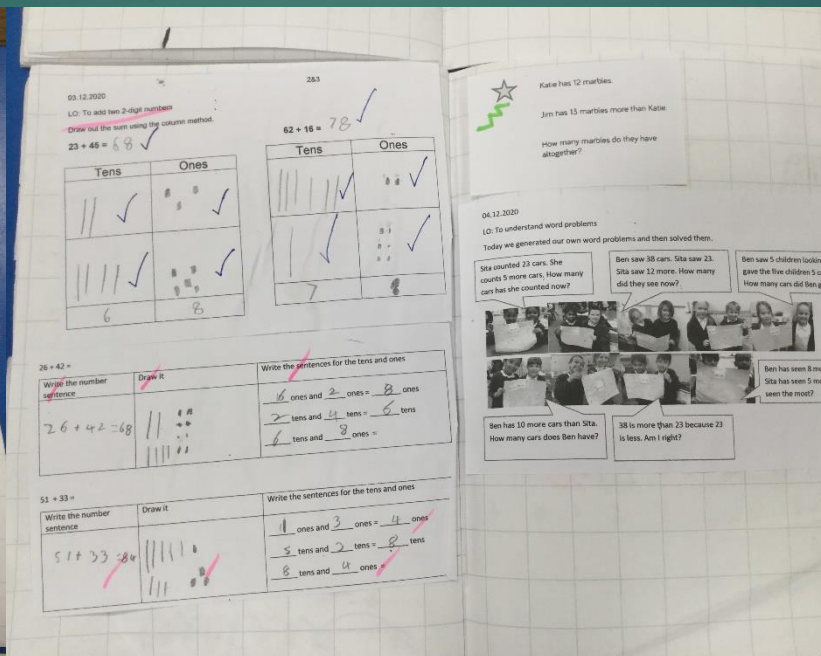 2&3
03.12.2020
LO: To add two 2-digit numbers
Draw out the sum using the column method.
23 + 45 = 68
Tens Ones
6 8
62 + 16 = 78
Tens Ones
7
26 + 42 =
Write the number sentence
Draw it
Write the sentences for the tens and ones
26 + 42 = 68
6 ones and 2 ones = 8 ones
2 tens and 4 tens = 6 tens
6 tens and 8 ones =
51 + 33 =
Write the number sentence
Draw it
Write the sentences for the tens and ones
51 + 33 = 84
1 ones and 3 ones = 4 ones
5 tens and 2 tens = 8 tens
8 tens and 4 ones =
Katie has 12 marbles.
Jim has 13 marbles more than Katie.
How many marbles do they have
altogether?
04.12.2020
LO: To understand word problems
Today we generated our own word problems and then solved them.
Sita counted 23 cars. She
counts 5 more cars, How many
cars has she counted now?
Ben saw 38 cars. Sita saw 23.
Sita saw 12 more. How many
did they see now?
Ben saw 5 children
gave the five children 5
How many cars did Ben
Ben has seen 8
Sita has seen 5
seen the most?
Ben has 10 more cars than Sita.
How many cars does Ben have?
38 is more than 23 because 23
is less. Am I right?